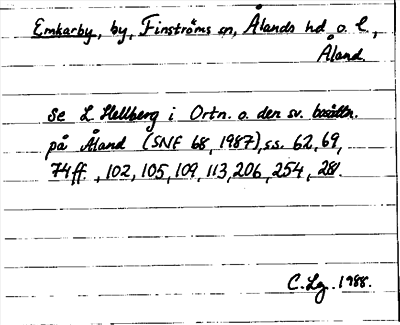 Emkarby, by, Finströms sn, Ålands hd o. l,
Åland.
Se L. Hellberg i Ortn. o. den sv. bosättn.
på Åland (SNF 68, 1987), ss. 62, 69,
74ff, 102, 105, 109, 113, 206, 254, 281.
C. Lg. 1988.